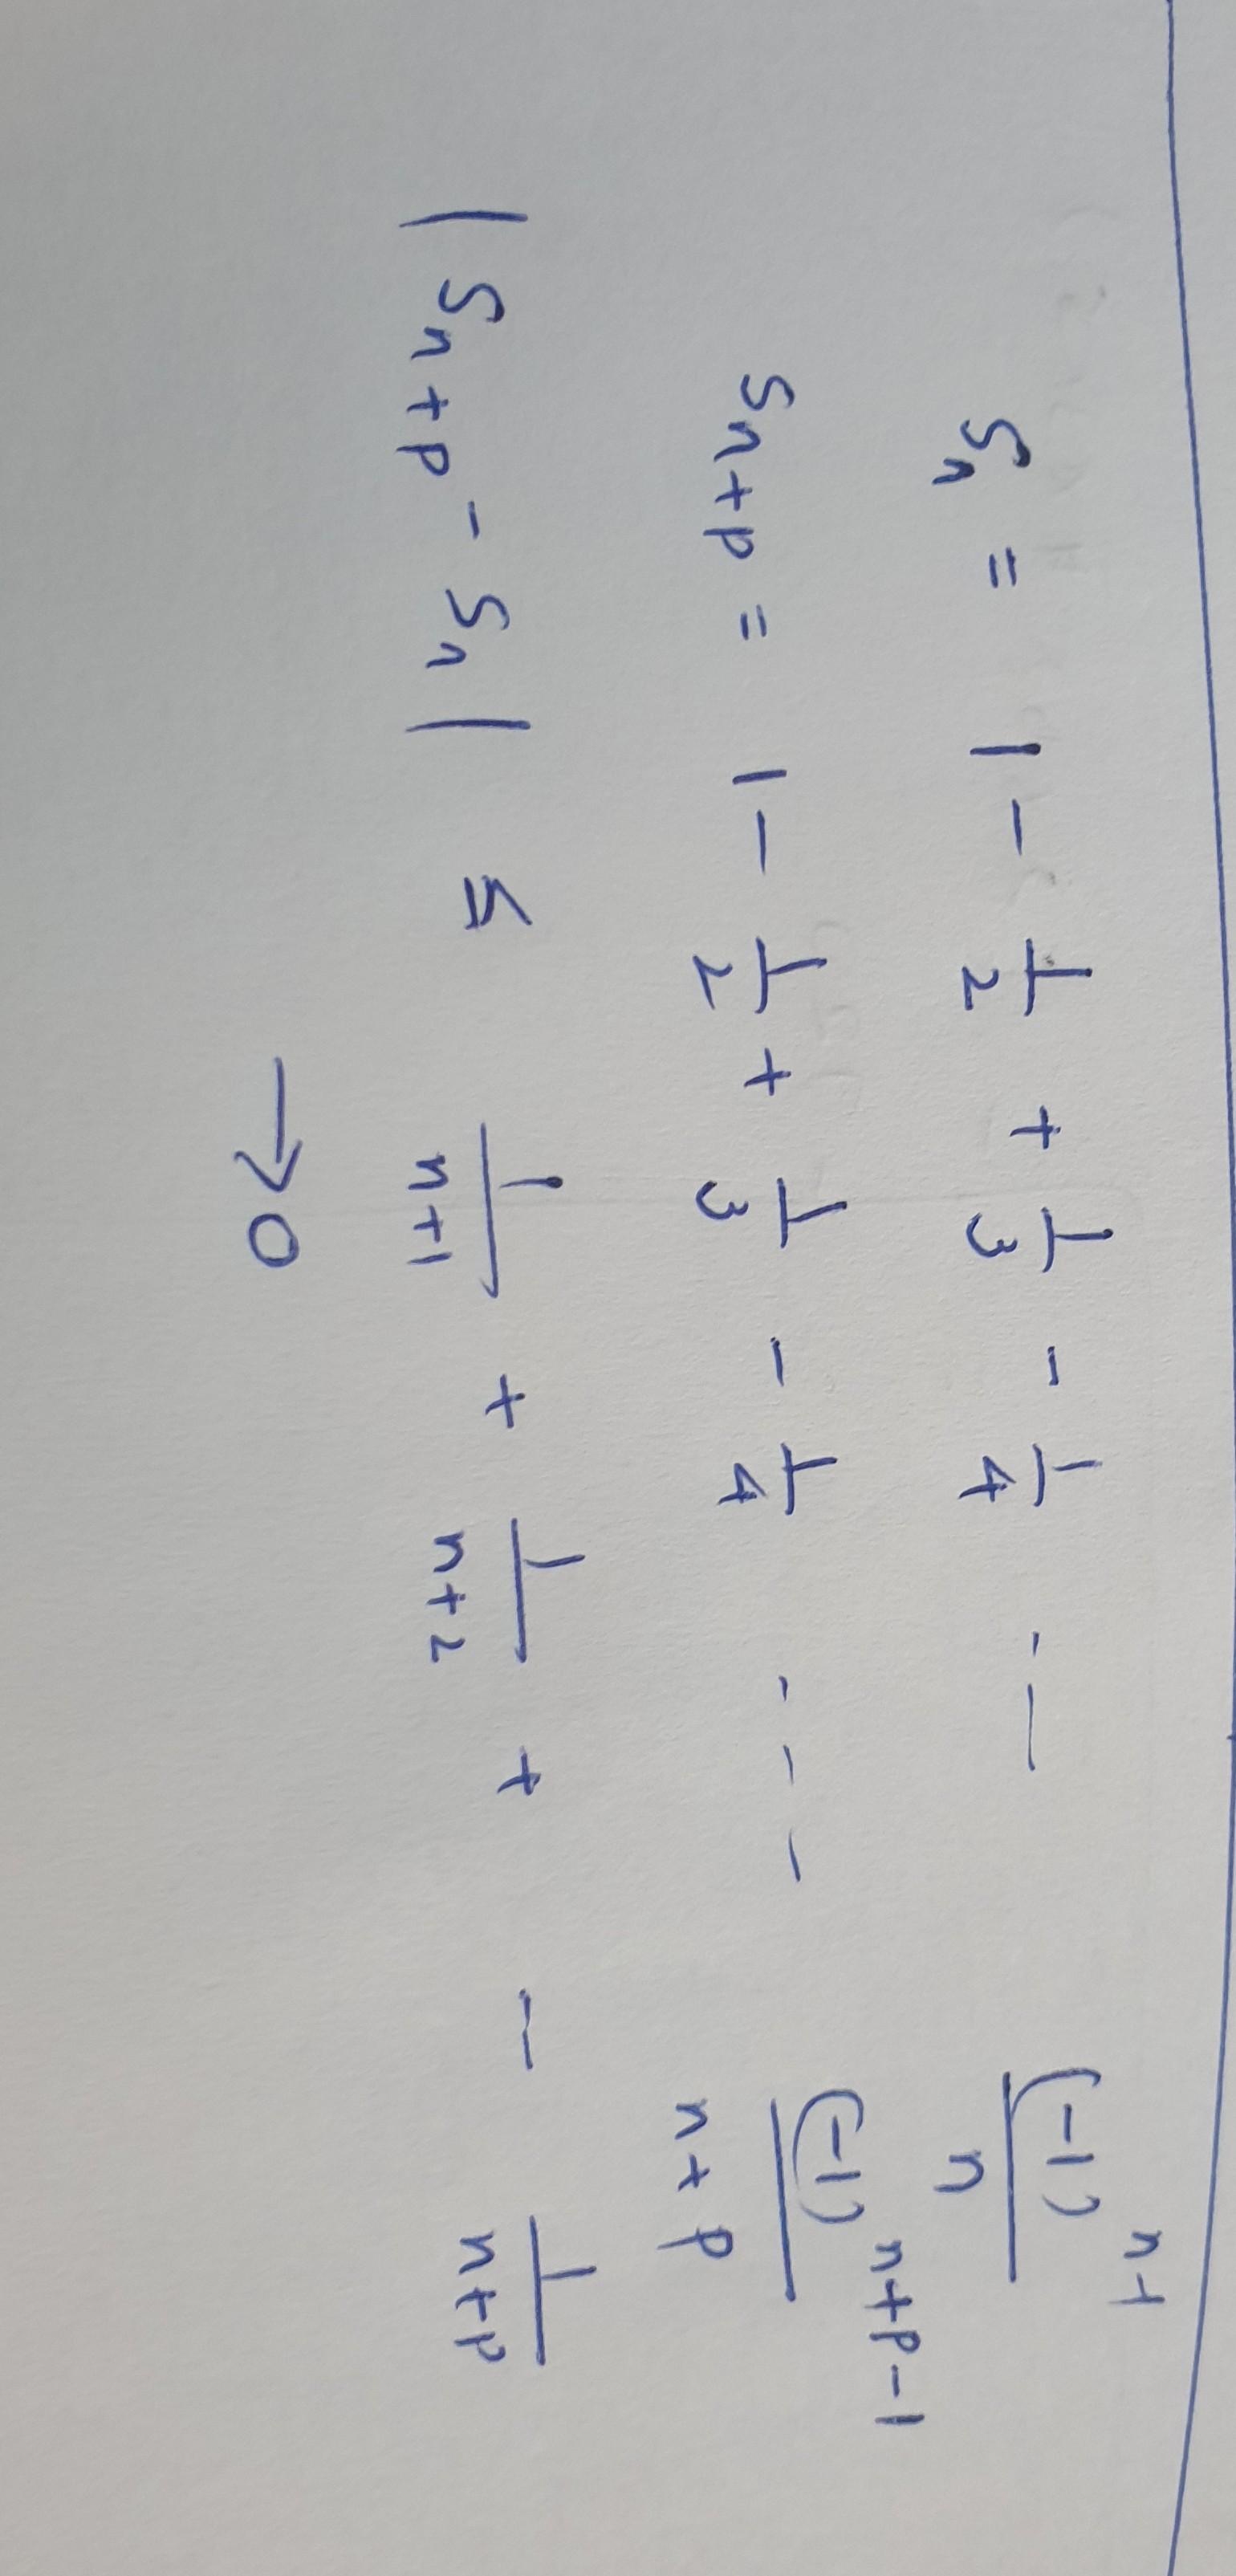 Sn = 1 - 1/2 + 1/3 - 1/4 - - - (-1)^n-1/n
Sn+p = 1 - 1/2 + 1/3 - 1/4 - - - (-1)^n+p-1/n+p
|Sn+p - Sn| ≤ 1/n+1 + 1/n+2 + - - 1/n+p
→ 0